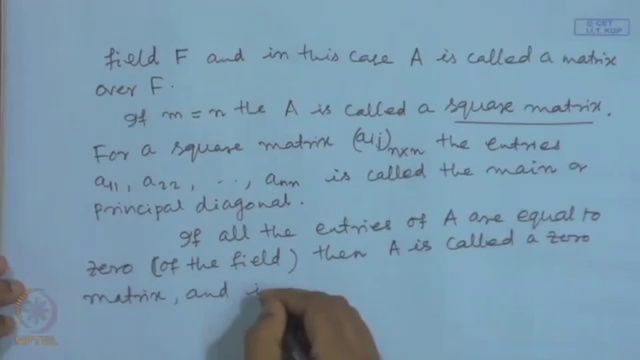 © CET
I.I.T. KGP
field F and in this case A is called a matrix
over F.
If m = n the A is called a square matrix.
For a square matrix (aij)n×n the entries
a11, a22, ..., ann is called the main or
principal diagonal.
If all the entries of A are equal to
zero (of the field) then A is called a zero
matrix, and i
NPTEL